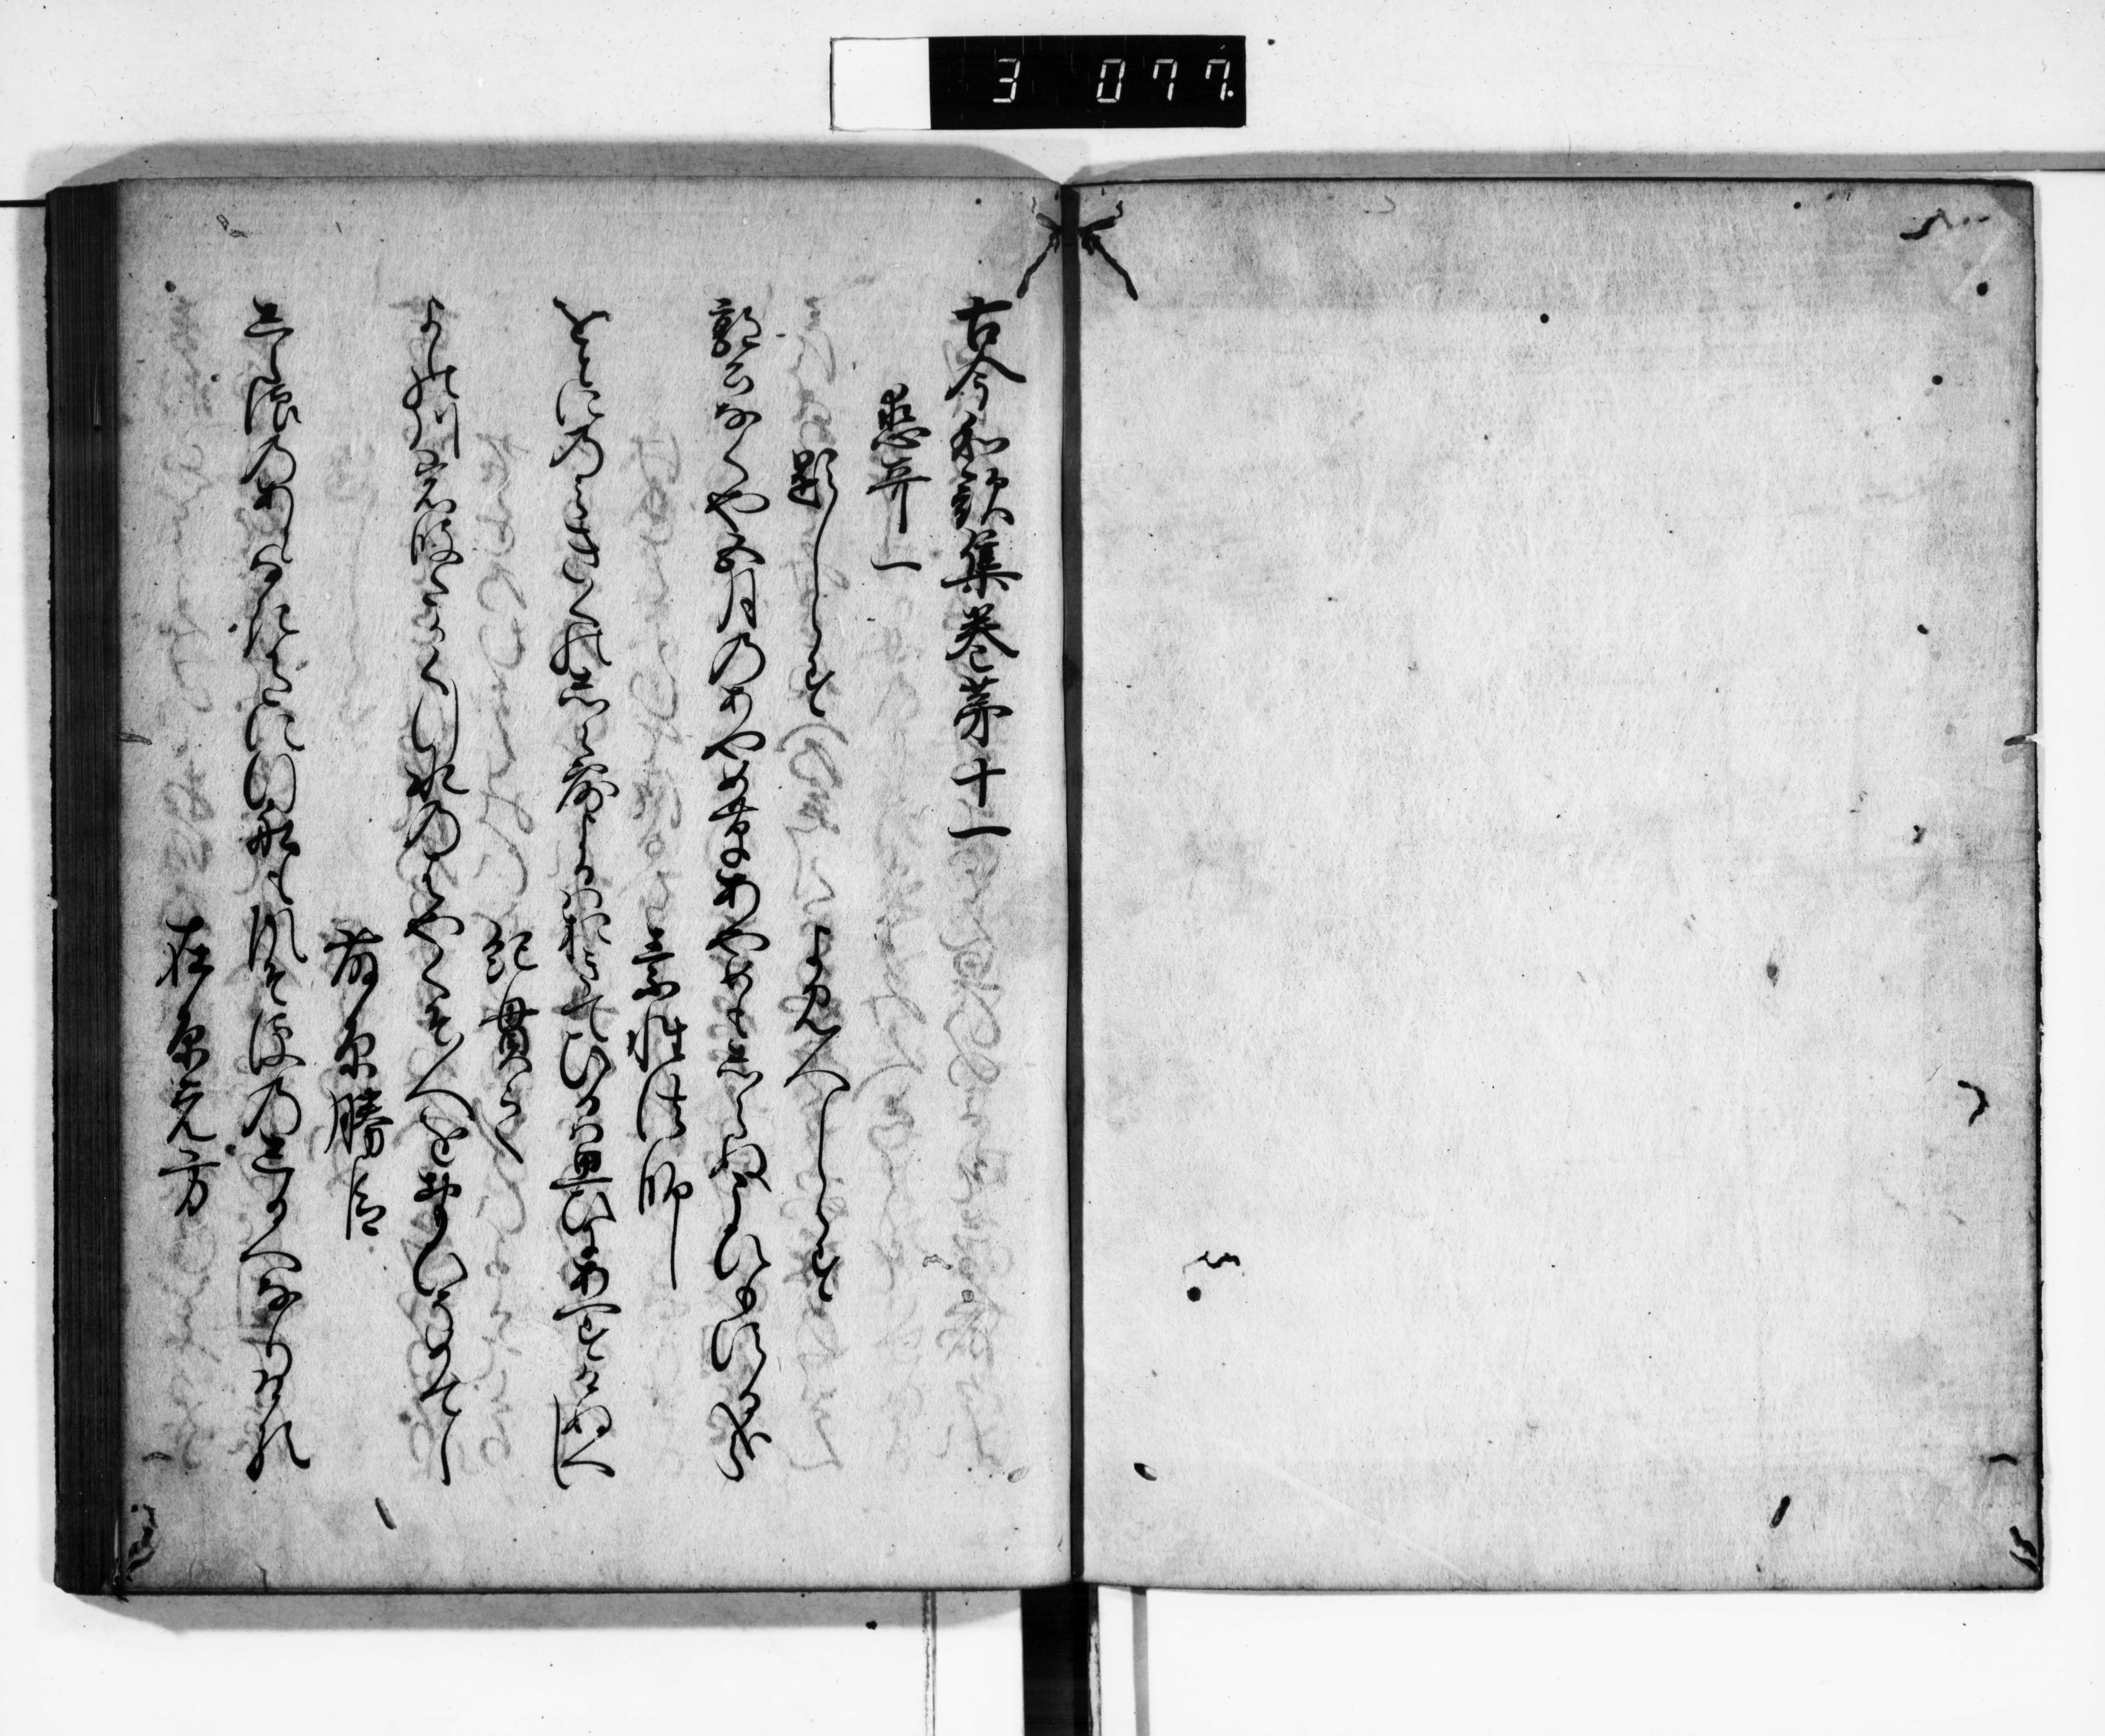 3 077
古今和歌集巻第十一
恋哥一
題しらす よみ人しらす
郭公なくや五月のあやめ草あやめもしらぬこひもする哉
素性法師
をとにのみきくの志ら露よるはおきてひるは思ひにあへすけぬへし
紀貫之
よしの川岩波たかく行水のはやくそ人を思ひそめてし
藤原勝臣
志ら浪のあとなきかたに行舟も風そたよりの志るへなりける
在原元方